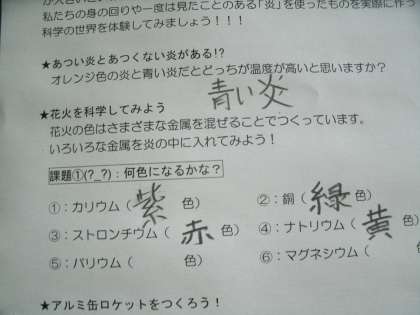 私たちの身の回りや一度は見たことのある「炎」を使ったものを実際に作っ
科学の世界を体験してみましょう！！！
★あつい炎とあつくない炎がある!?
オレンジ色の炎と青い炎だとどっちが温度が高いと思いますか？
青い炎
★花火を科学してみよう
花火の色はさまざまな金属を混ぜることでつくっています。
いろいろな金属を炎の中に入れてみよう！
課題①(?_?)：何色になるかな？
①：カリウム（ 紫 色） ②：銅（ 緑 色）
③：ストロンチウム（ 赤 色） ④：ナトリウム（ 黄 色
⑤：バリウム（ 色） ⑥：マグネシウム（
★アルミ缶ロケットをつくろう！